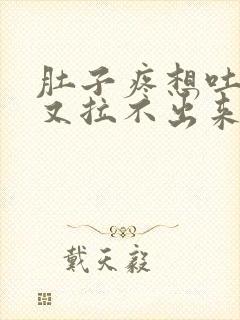 肚子疼想吐
又拉不出来
戴天毅